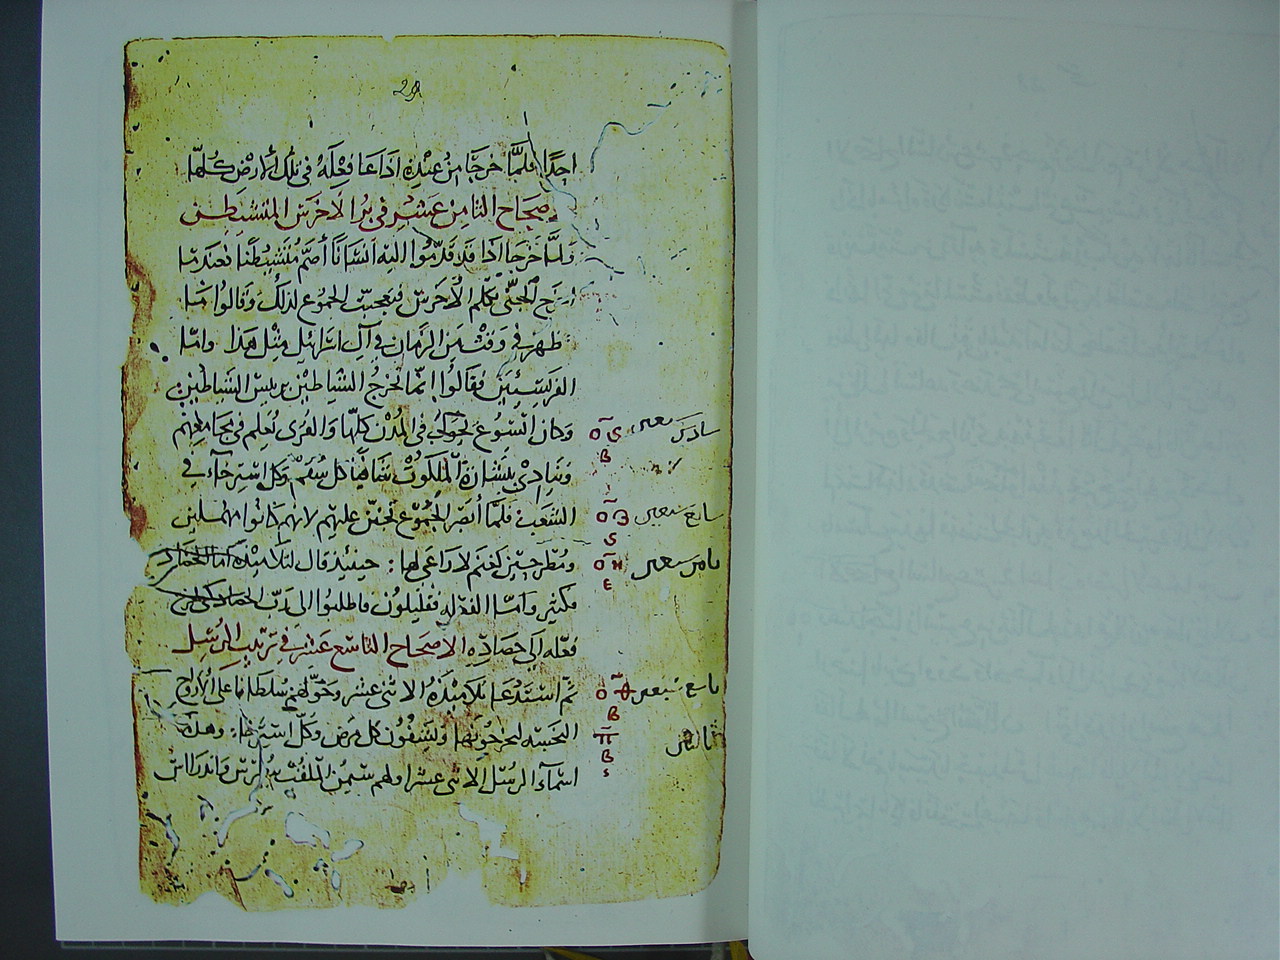 29
احدًا فلمَّا خرجَا مِنُ عِنْدِهِ اذَاعَا فِعْلَهُ في تِلكَ الأرضِ كُلهَا
صحاح الثامِن عَشرِ في بُرا الاخرَس المتشيطِن
وَلمَّا خرَجَا اذَا قد قدَّمُوا اليْهِ انسَانًا أصَمَّ مُتَشيْطنًا فعندمَا
اخرَج الجنّي تكلم الأخرَسُ فتعجبَت الجموُع لذلكَ وَقالوُا مَا
ظهرَ في وَقتٍ مِنَ الزمانِ في آلِ اسرَائل مثل هَذا وَامّا
الفريسيُين فقالوُا انّما تخرجُ الشياطيْن بريس الشياطين
وَكان ايسُوع يجولُ في المُدُن كلّها وَالقرى يُعَلم في مجَامعِهم
وَينادِي ببشارَة الملكوُت شافيًا كل سُقم وَكل استرخآء في
الشعَب فلمَّا أبصَر الجموُع تحنن عليهِم لانهم كانوُا مهملين
وَمُطرحيْن كغنم لا رَاعَى لها: حينئِذ قال لتلاميْذِه أمَا الحصَاد
فكثير وَامّا الفعَلهِ فقليلوُن فاطلبوُا الى رَبّ الحصَاد
فعَله الى حصَادِه الاصحَاح التاسع عَشر في ترتيب الرسُل
ثم استدعَا تلاميْذهُ الاثنى عشر وَخوّلهم سُلطانا على الأرواح
النجسه ليخرجُونها وَيشفُون كل مرَض وَكل استرخآ: وَهذه
اسمآء الرسُل الاثنى عشر اولهم سمعُن الملقب ببُطرس وَاندراس
سادس سبعين
سابع سبعين
ثامن سبعين
تاسع سبعين
ثمانين